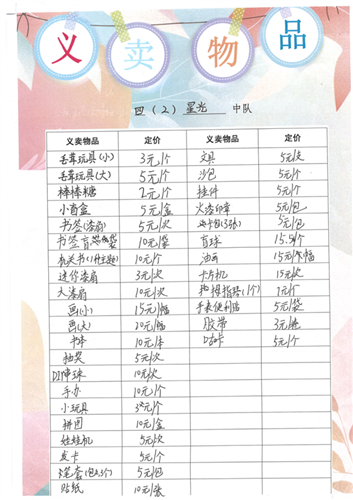 义卖物品
四（2）星光 中队
义卖物品 定价 义卖物品 定价
毛茸玩具(小) 3元/个 文具 5元/支
毛茸玩具(大) 5元/个 沙包 5元/个
棒棒糖 2元/个 挂件 5元/个
小盲盒 5元/盒 火漆印章 5元/包
书签(漆扇) 5元/次 5元/包
书签盲袋 10元/袋 15.5/个
10元/个 油画 15元/幅
迷你漆扇 3元/次 卡片机 15元/次
大漆扇 10元/次 拇指琴(1个) 1元/个
画(小) 15元/幅 手表便利店 5元/袋
画(大) 20元/幅 胶带 3元/卷
书本 10元/本 咕卡 5元/个
抽奖 5元/次
DIY串珠 10元/次
手办 10元/个
小玩具 3元/个
拼图 10元/盒
娃娃机 5元/次
发卡 5元/个
笔套 5元/包
贴纸 10元/袋